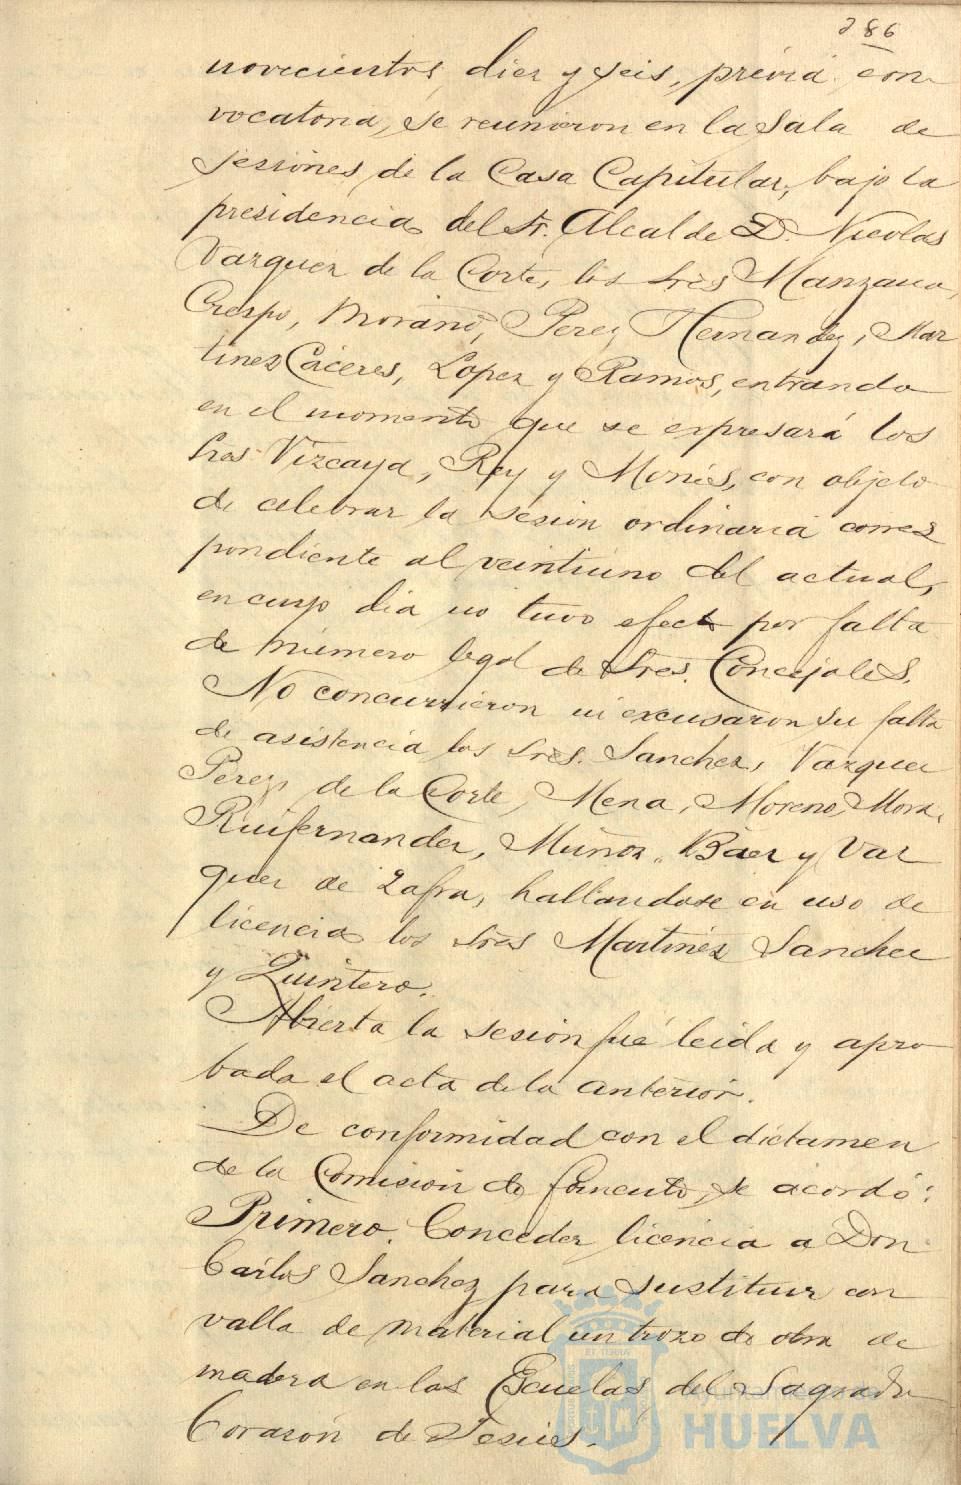 286
novecientos diez y seis, prévia con
vocatoria, se reunieron en la Sala de
sesiónes de la Casa Capitular, bajo la
presidencia del Sr. Alcalde D. Nicolas
Vazquez de la Corte, los Sres Manzano,
Crespo, Morano, Perez Hernandez, Mar
tinez Cáceres, Lopez y Ramos, entrando
en el momento que se expresará los
Sres Vizcaya, Rey y Monís, con objeto
de celebrar la sesion ordinaria corres
pondiente al veintiuno del actual,
en cuyo dia no tuvo efecto por falta
de número legal de Sres. Concejales.
No concurrieron ni excusaron su falta
de asistencia los Sres. Sanchez, Vazquez
Perez, de la Corte, Mena, Moreno, Mora,
Ruifernandez, Muñoz, Báez y Vaz
quez de Zafra, hallandose en uso de
licencia los Sres Martinez Sanchez
y Quintero.
Abierta la sesion fué leida y apro
bada el acta de la anterior.
De conformidad con el dictamen
de la Comision de Fomento, se acordó:
Primero. Conceder licencia a Don
Cárlos Sanchez para sustituir con
valla de material un trozo de obra de
madera en las Escuelas del Sagrado
Corazón de Jesús.
Ayuntamiento de
HUELVA